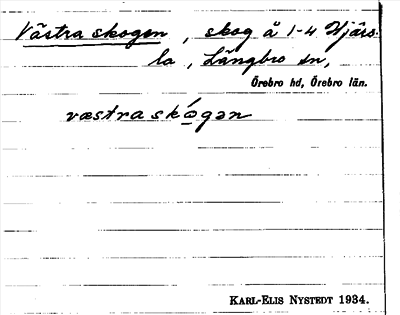 Västra skogen, skog å 1-4 Hjärs-
la, Längbro sn,
Örebro hd, Örebro län.
væstra skó̲gən
KARL-ELIS NYSTEDT 1934.